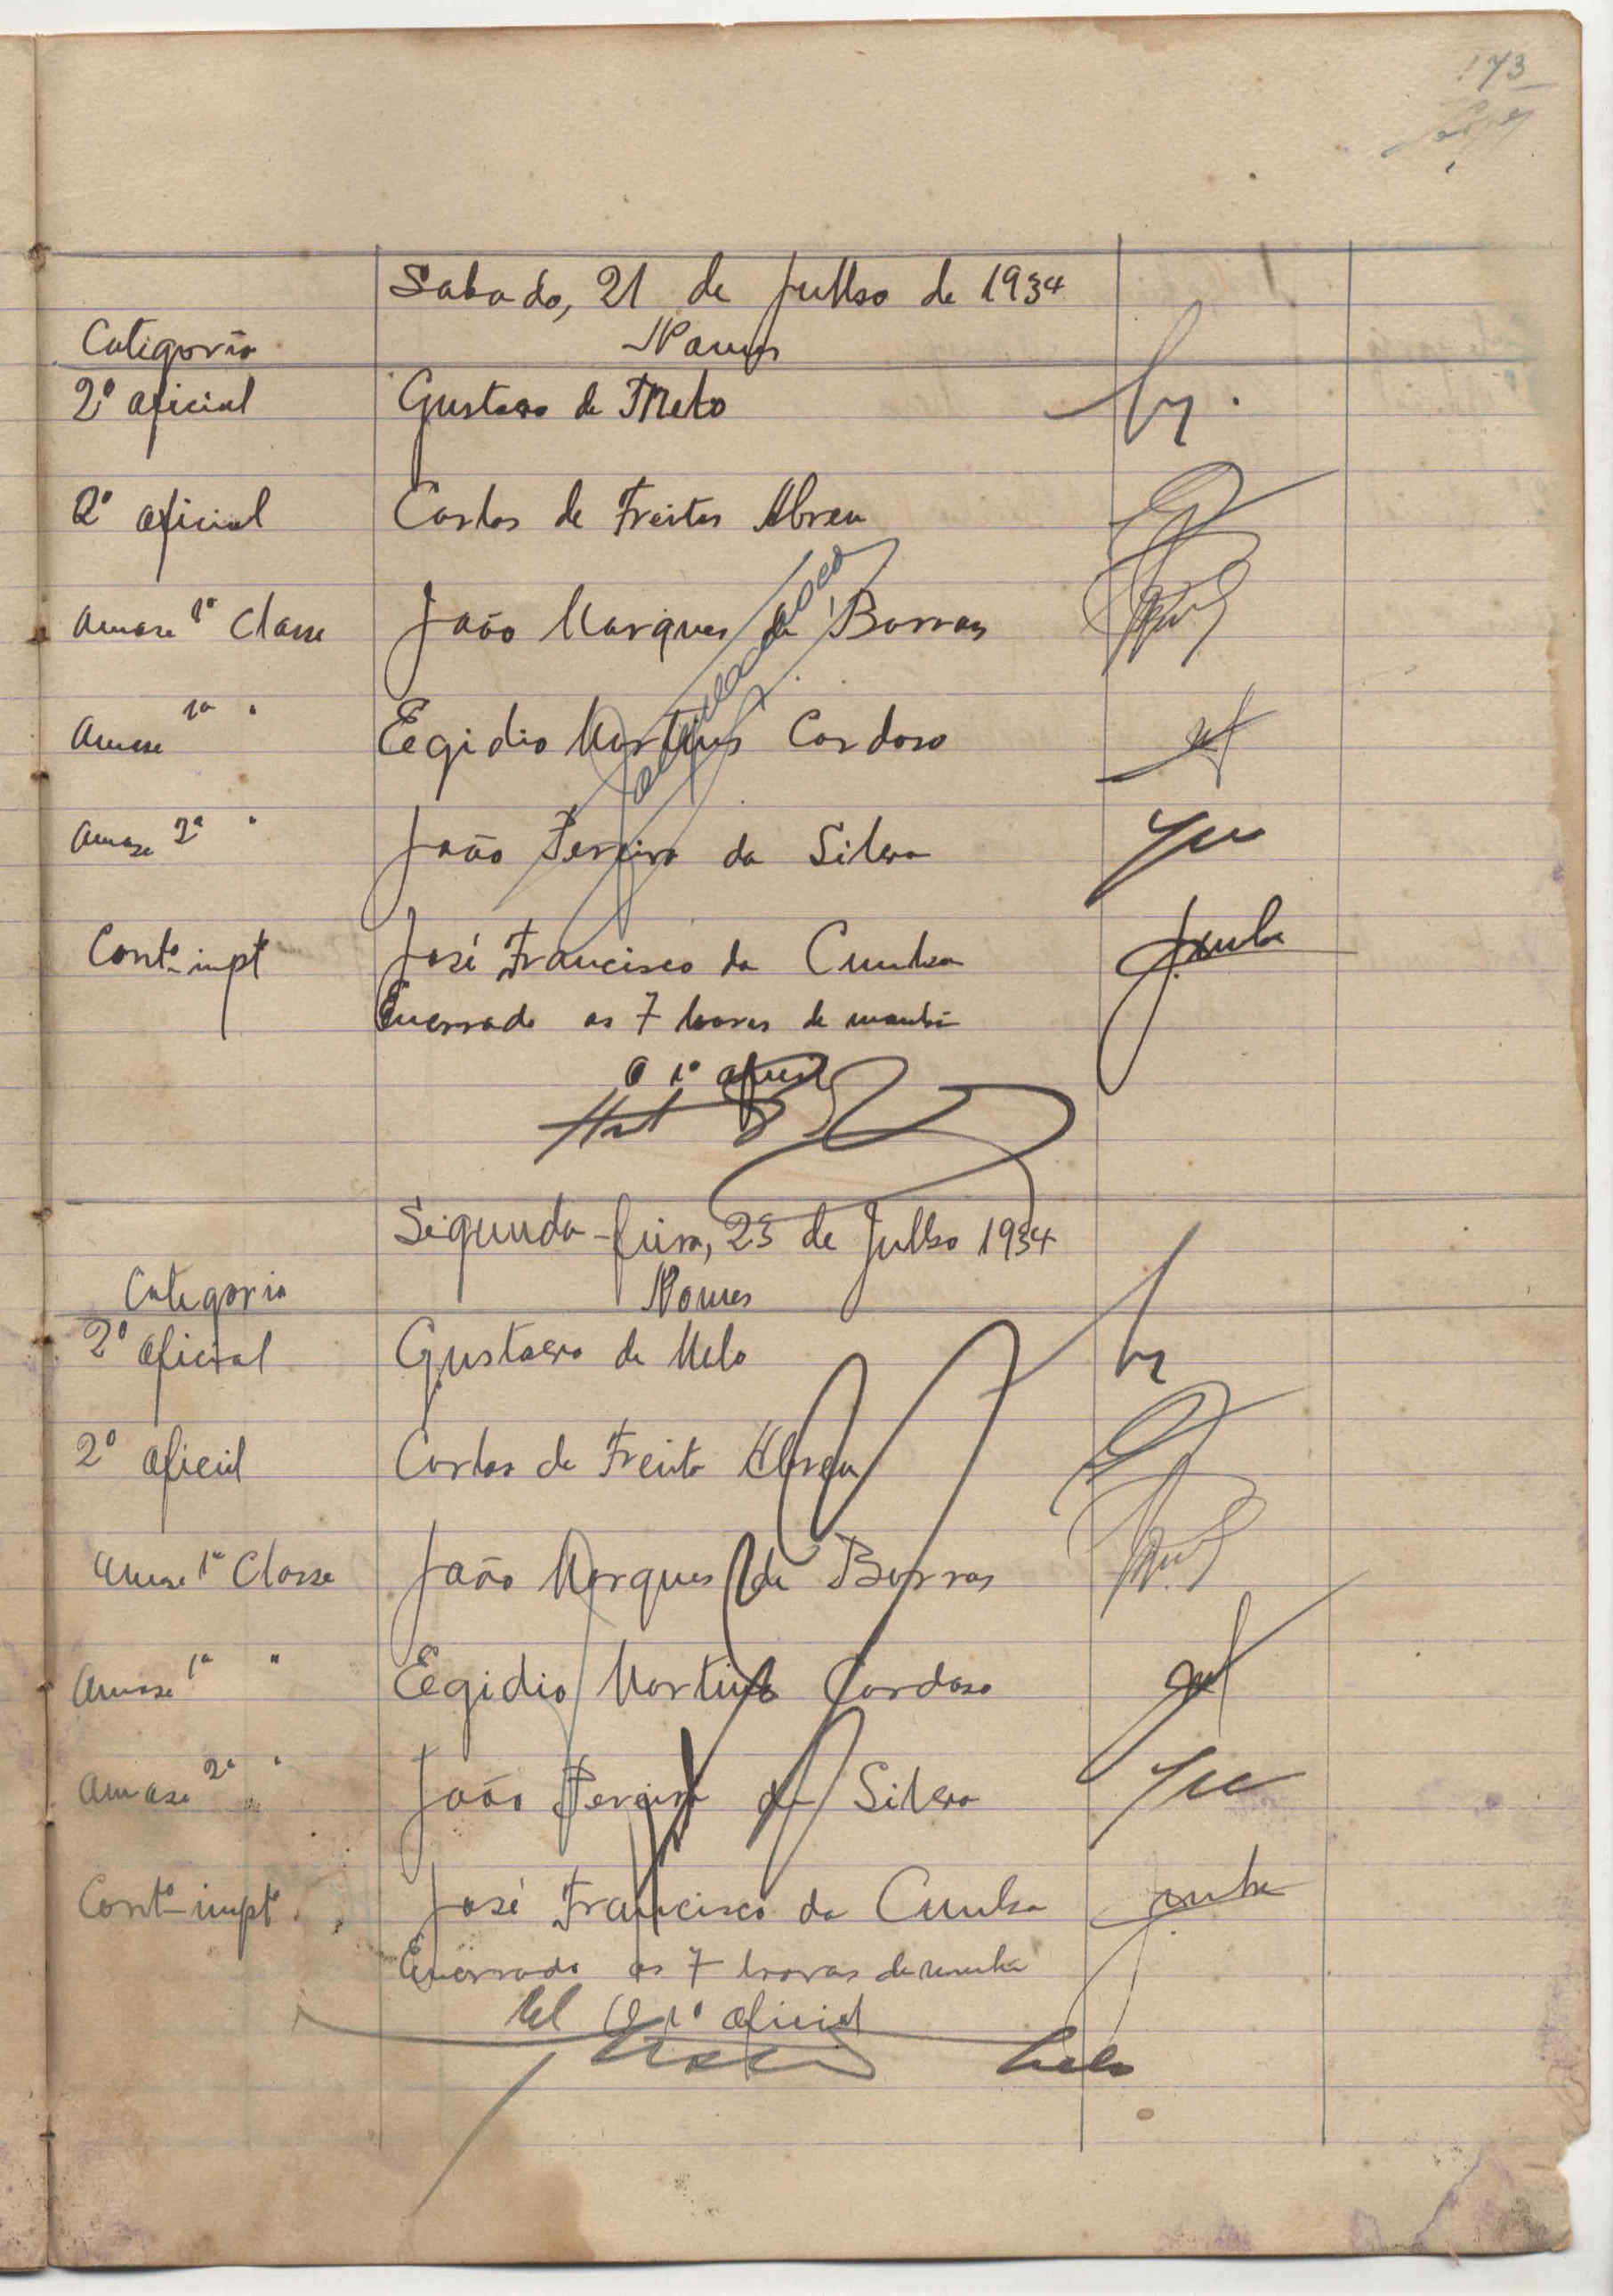 173
Sabado, 21 de Julho de 1934
Categoria Nomes
2º oficial Gustavo de Melo
2º oficial Carlos de Freitas Abreu
Amanse 1ª Classe João Marques de Barros
Amanse 1ª " Egidio Martins Cardoso
Amanse 2ª " João Pereira da Silva
Contº imptº José Francisco da Cunha Jcunha
Encerrado as 7 horas da manhã
O 1º oficial
Segunda-feira, 23 de Julho 1934
Categoria Nomes
2º oficial Gustavo de Melo
2º oficial Carlos de Freitas Abreu
Amanse 1ª Classe João Marques de Barros
Amanse 1ª " Egidio Martins Cardoso
Amanse 2ª " João Pereira da Silva
Contº impt. José Francisco da Cunha Jcunha
Encerrado as 7 horas da manhã
O 1º oficial